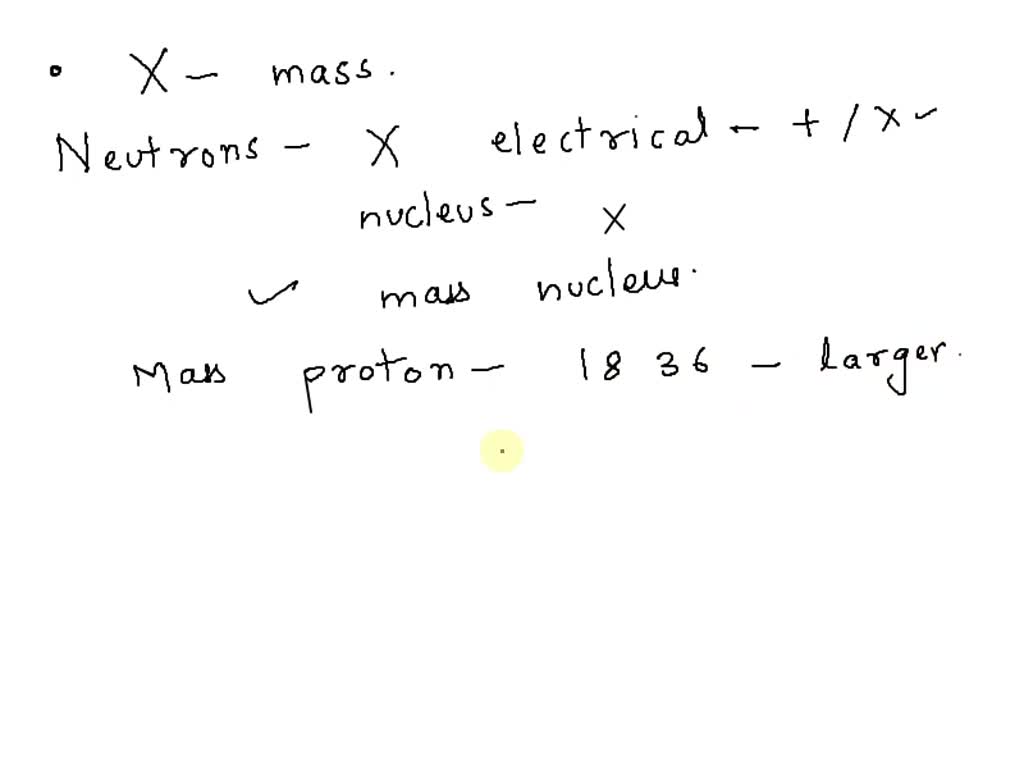 • X – mass.
Neutrons – X electrical – + / X ✓
nucleus – X
✓ mass nucleus.
Mass proton – 1836 – larger.